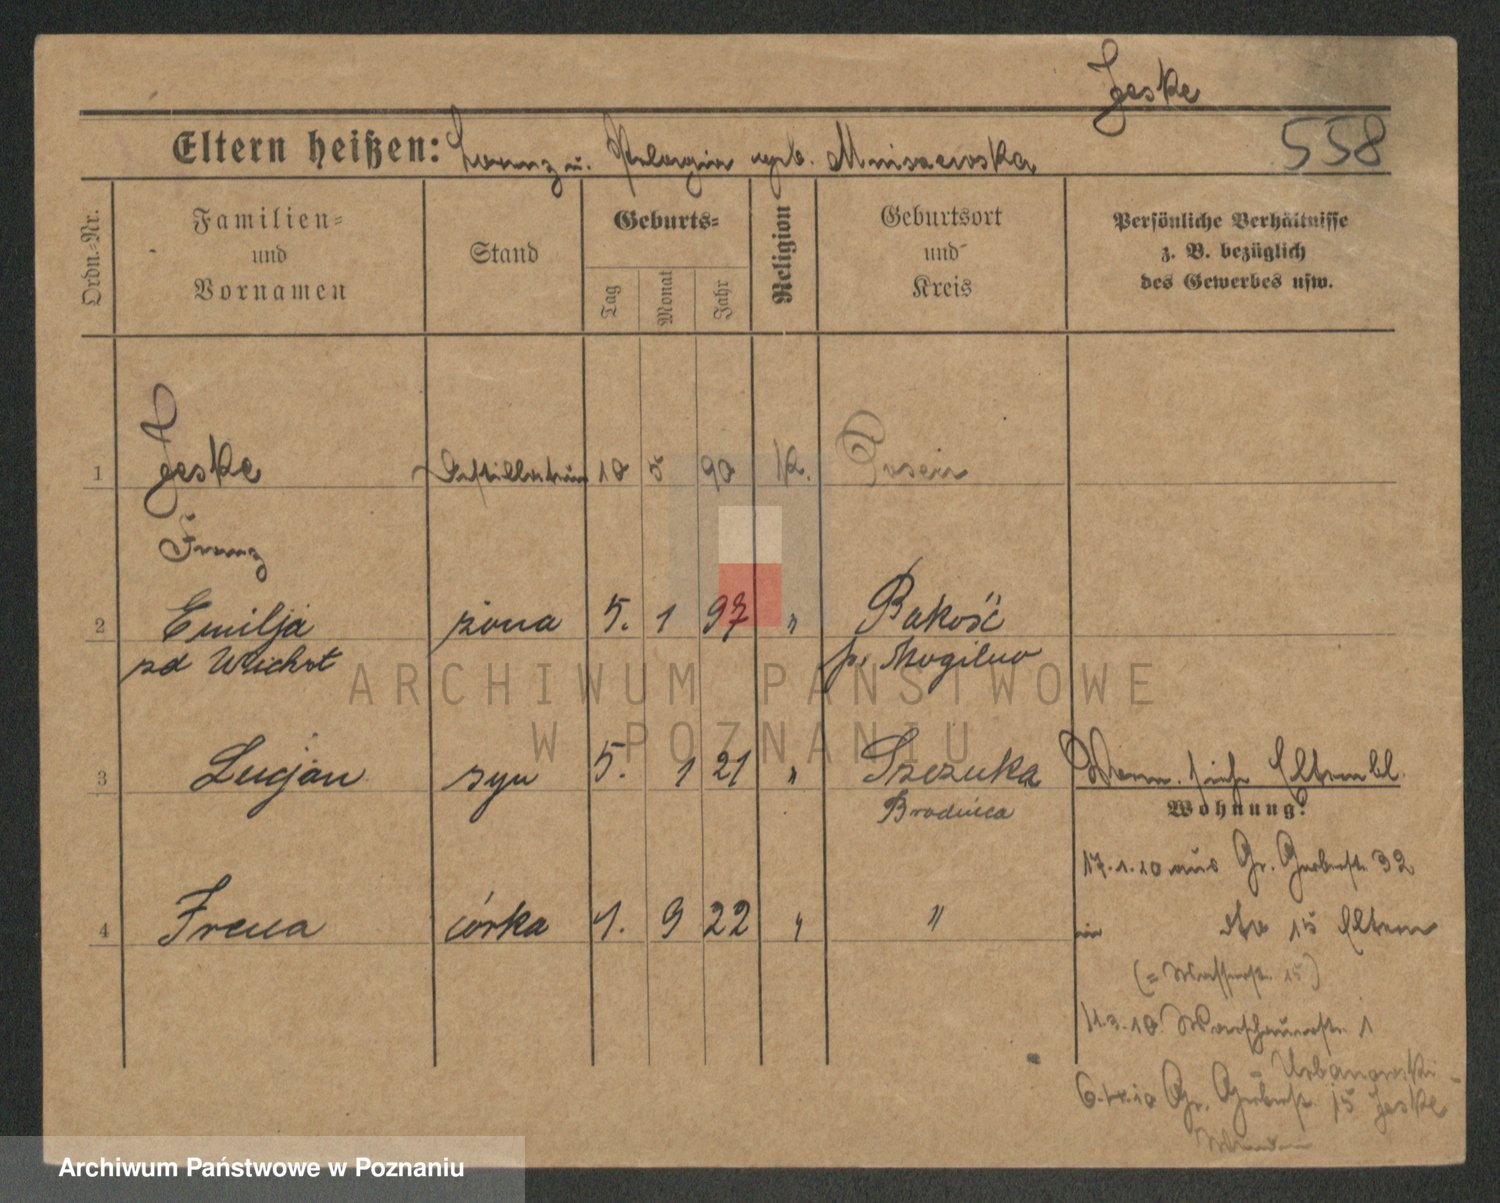 Jeske
558
Eltern heißen: Lorenz u. Pelagia geb. Mniszewska
Ordn.-Nr.
Familien-
und
Vornamen
Stand
Geburts-
Tag
Monat
Jahr
Religion
Geburtsort
und
Kreis
Persönliche Verhältnisse
z. B. bezüglich
des Gewerbes usw.
1 Jeske 10 5 90 K. Posen
Franz
2 Emilja żona 5. 1 97 " Pakość
zd p. Mogilno
3 Lucjan syn 5. 1 21 " Szczuka
Brodnica
4 Irena córka 1. 9 22 " "
Verm. siehe Elternbl.
Wohnung:
17.1.10 aus Gr. Gerberstr. 32
in dto 15 Eltern
(= Wasserstr. 15)
11.3.10 Warschauerstr. 1
Urbanowski
6.4.10 Gr. Gerberstr. 15 Jeske
ARCHIWUM PAŃSTWOWE
W POZNANIU
Archiwum Państwowe w Poznaniu